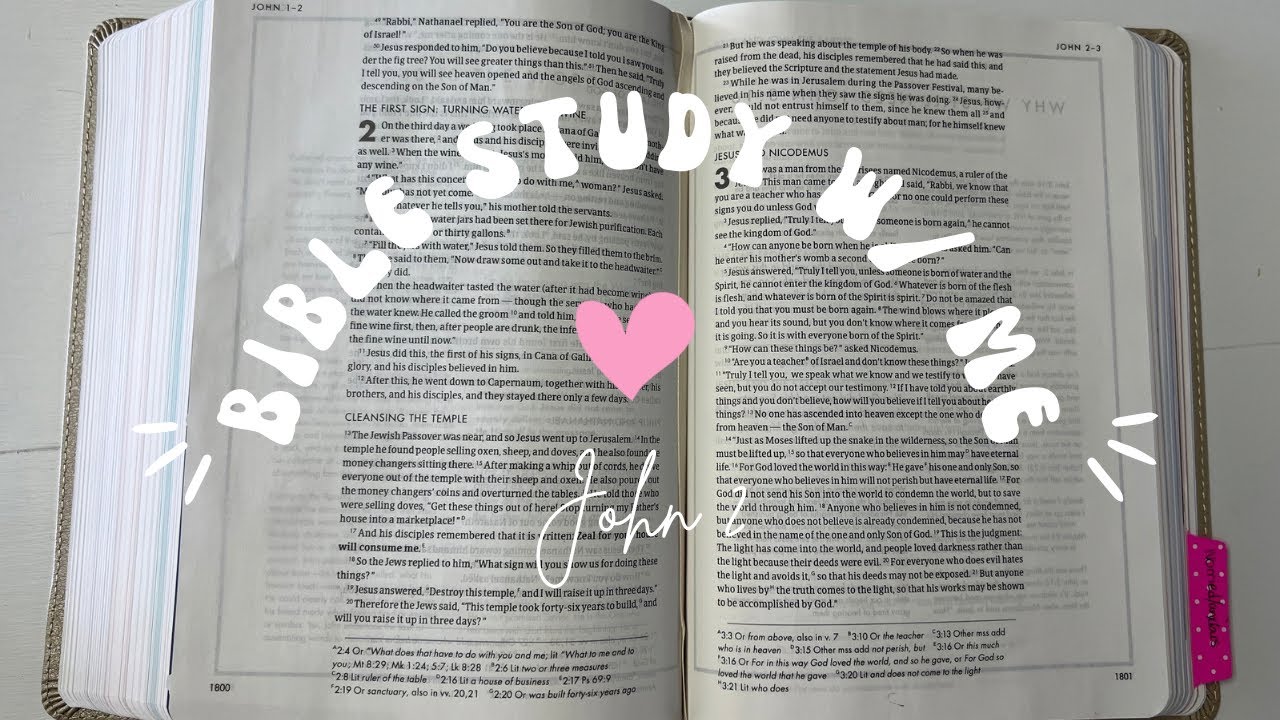 JOHN 1–2
49 "Rabbi," Nathanael replied, "You are the Son of God; you are the King
of Israel!"
50 Jesus responded to him, "Do you believe because I told you I saw you un-
der the fig tree? You will see greater things than this." 51 Then he said, "Truly
I tell you, you will see heaven opened and the angels of God ascending and
descending on the Son of Man."
THE FIRST SIGN: TURNING WATER WINE
2 On the third day a took place Cana of
er was there, 2 and Jesus and his disciples were
as well. 3 When the wine Jesus's told him, have
any wine."
has this concern to do with me, A woman?" Jesus asked.
has not yet come
whatever he tells you," his mother told the servants.
water jars had been set there for Jewish purification. Each
or thirty gallons. B
7 "Fill the with water," Jesus told them. So they filled them to the brim.
8 said to them, "Now draw some out and take it to the headwaiter." C
did.
When the headwaiter tasted the water (after it had become
did not know where it came from — though the who
the water knew. He called the groom 10 and told him,
fine wine first, then, after people are drunk, the
the fine wine until now."
11 Jesus did this, the first of his signs, in Cana of
glory, and his disciples believed in him.
12 After this, he went down to Capernaum, together with his
brothers, and his disciples, and they stayed there only a few days.
CLEANSING THE TEMPLE
13 The Jewish Passover was near, and so Jesus went up to Jerusalem. 14 In the
temple he found people selling oxen, sheep, and doves, and he also found the
money changers sitting there. 15 After making a whip of cords, he
everyone out of the temple with their sheep and oxen. He also poured out
the money changers' coins and overturned the tables. told those who
were selling doves, "Get these things out of here! Stop turning my Father's
house into a marketplace!" D
17 And his disciples remembered that it is written: Zeal for your house
will consume me. E
18 So the Jews replied to him, "What sign will you show us for doing these
things?"
19 Jesus answered, "Destroy this temple, F and I will raise it up in three days."
20 Therefore the Jews said, "This temple took forty-six years to build, G and
will you raise it up in three days?"
A 2:4 Or "What does that have to do with you and me; lit "What to me and to
you; Mt 8:29; Mk 1:24; 5:7; Lk 8:28 B 2:6 Lit two or three measures
C 2:8 Lit ruler of the table D 2:16 Lit a house of business E 2:17 Ps 69:9
F 2:19 Or sanctuary, also in vv. 20,21 G 2:20 Or was built forty-six years ago
1800
JOHN 2–3
21 But he was speaking about the temple of his body. 22 So when he was
raised from the dead, his disciples remembered that he had said this, and
they believed the Scripture and the statement Jesus had made.
23 While he was in Jerusalem during the Passover Festival, many be-
lieved in his name when they saw the signs he was doing. 24 Jesus, how-
ever, would not entrust himself to them, since he knew them all 25 and
because he did not need anyone to testify about man; for he himself knew
what
JESUS AND NICODEMUS
3 was a man from the Pharisees named Nicodemus, a ruler of the
This man came to said, "Rabbi, we know that
you are a teacher who has for no one could perform these
signs you do unless God
3 Jesus replied, "Truly I tell you, unless someone is born again, A he cannot
see the kingdom of God."
4 "How can anyone be born when he is asked him. "Can
he enter his mother's womb a second born?"
5 Jesus answered, "Truly I tell you, unless someone is born of water and the
Spirit, he cannot enter the kingdom of God. 6 Whatever is born of the flesh
is flesh, and whatever is born of the Spirit is spirit. 7 Do not be amazed that
I told you that you must be born again. 8 The wind blows where it
and you hear its sound, but you don't know where it comes
it is going. So it is with everyone born of the Spirit."
9 "How can these things be?" asked Nicodemus.
10 "Are you a teacher B of Israel and don't know these things?"
11 "Truly I tell you, we speak what we know and we testify to have
seen, but you do not accept our testimony. 12 If I have told you about earthly
things and you don't believe, how will you believe if I tell you about
things? 13 No one has ascended into heaven except the one who
from heaven — the Son of Man. C
14 "Just as Moses lifted up the snake in the wilderness, so the Son
must be lifted up, 15 so that everyone who believes in him may D have eternal
life. 16 For God loved the world in this way: E He gave F his one and only Son, so
that everyone who believes in him will not perish but have eternal life. 17 For
God did not send his Son into the world to condemn the world, but to save
the world through him. 18 Anyone who believes in him is not condemned,
but anyone who does not believe is already condemned, because he has not
believed in the name of the one and only Son of God. 19 This is the judgment:
The light has come into the world, and people loved darkness rather than
the light because their deeds were evil. 20 For everyone who does evil hates
the light and avoids it, G so that his deeds may not be exposed. 21 But anyone
who lives by H the truth comes to the light, so that his works may be shown
to be accomplished by God."
A 3:3 Or from above, also in v. 7 B 3:10 Or the teacher C 3:13 Other mss add
who is in heaven D 3:15 Other mss add not perish, but E 3:16 Or this much
F 3:16 Or For in this way God loved the world, and so he gave, or For God so
loved the world that he gave G 3:20 Lit and does not come to the light
H 3:21 Lit who does
1801
BIBLE STUDY W/ ME
John 2